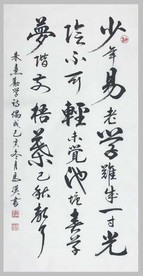 少年易老学难成一寸光
阴不可轻未觉池塘春草
梦阶前梧叶已秋声
朱熹劝学诗偶成己亥冬月